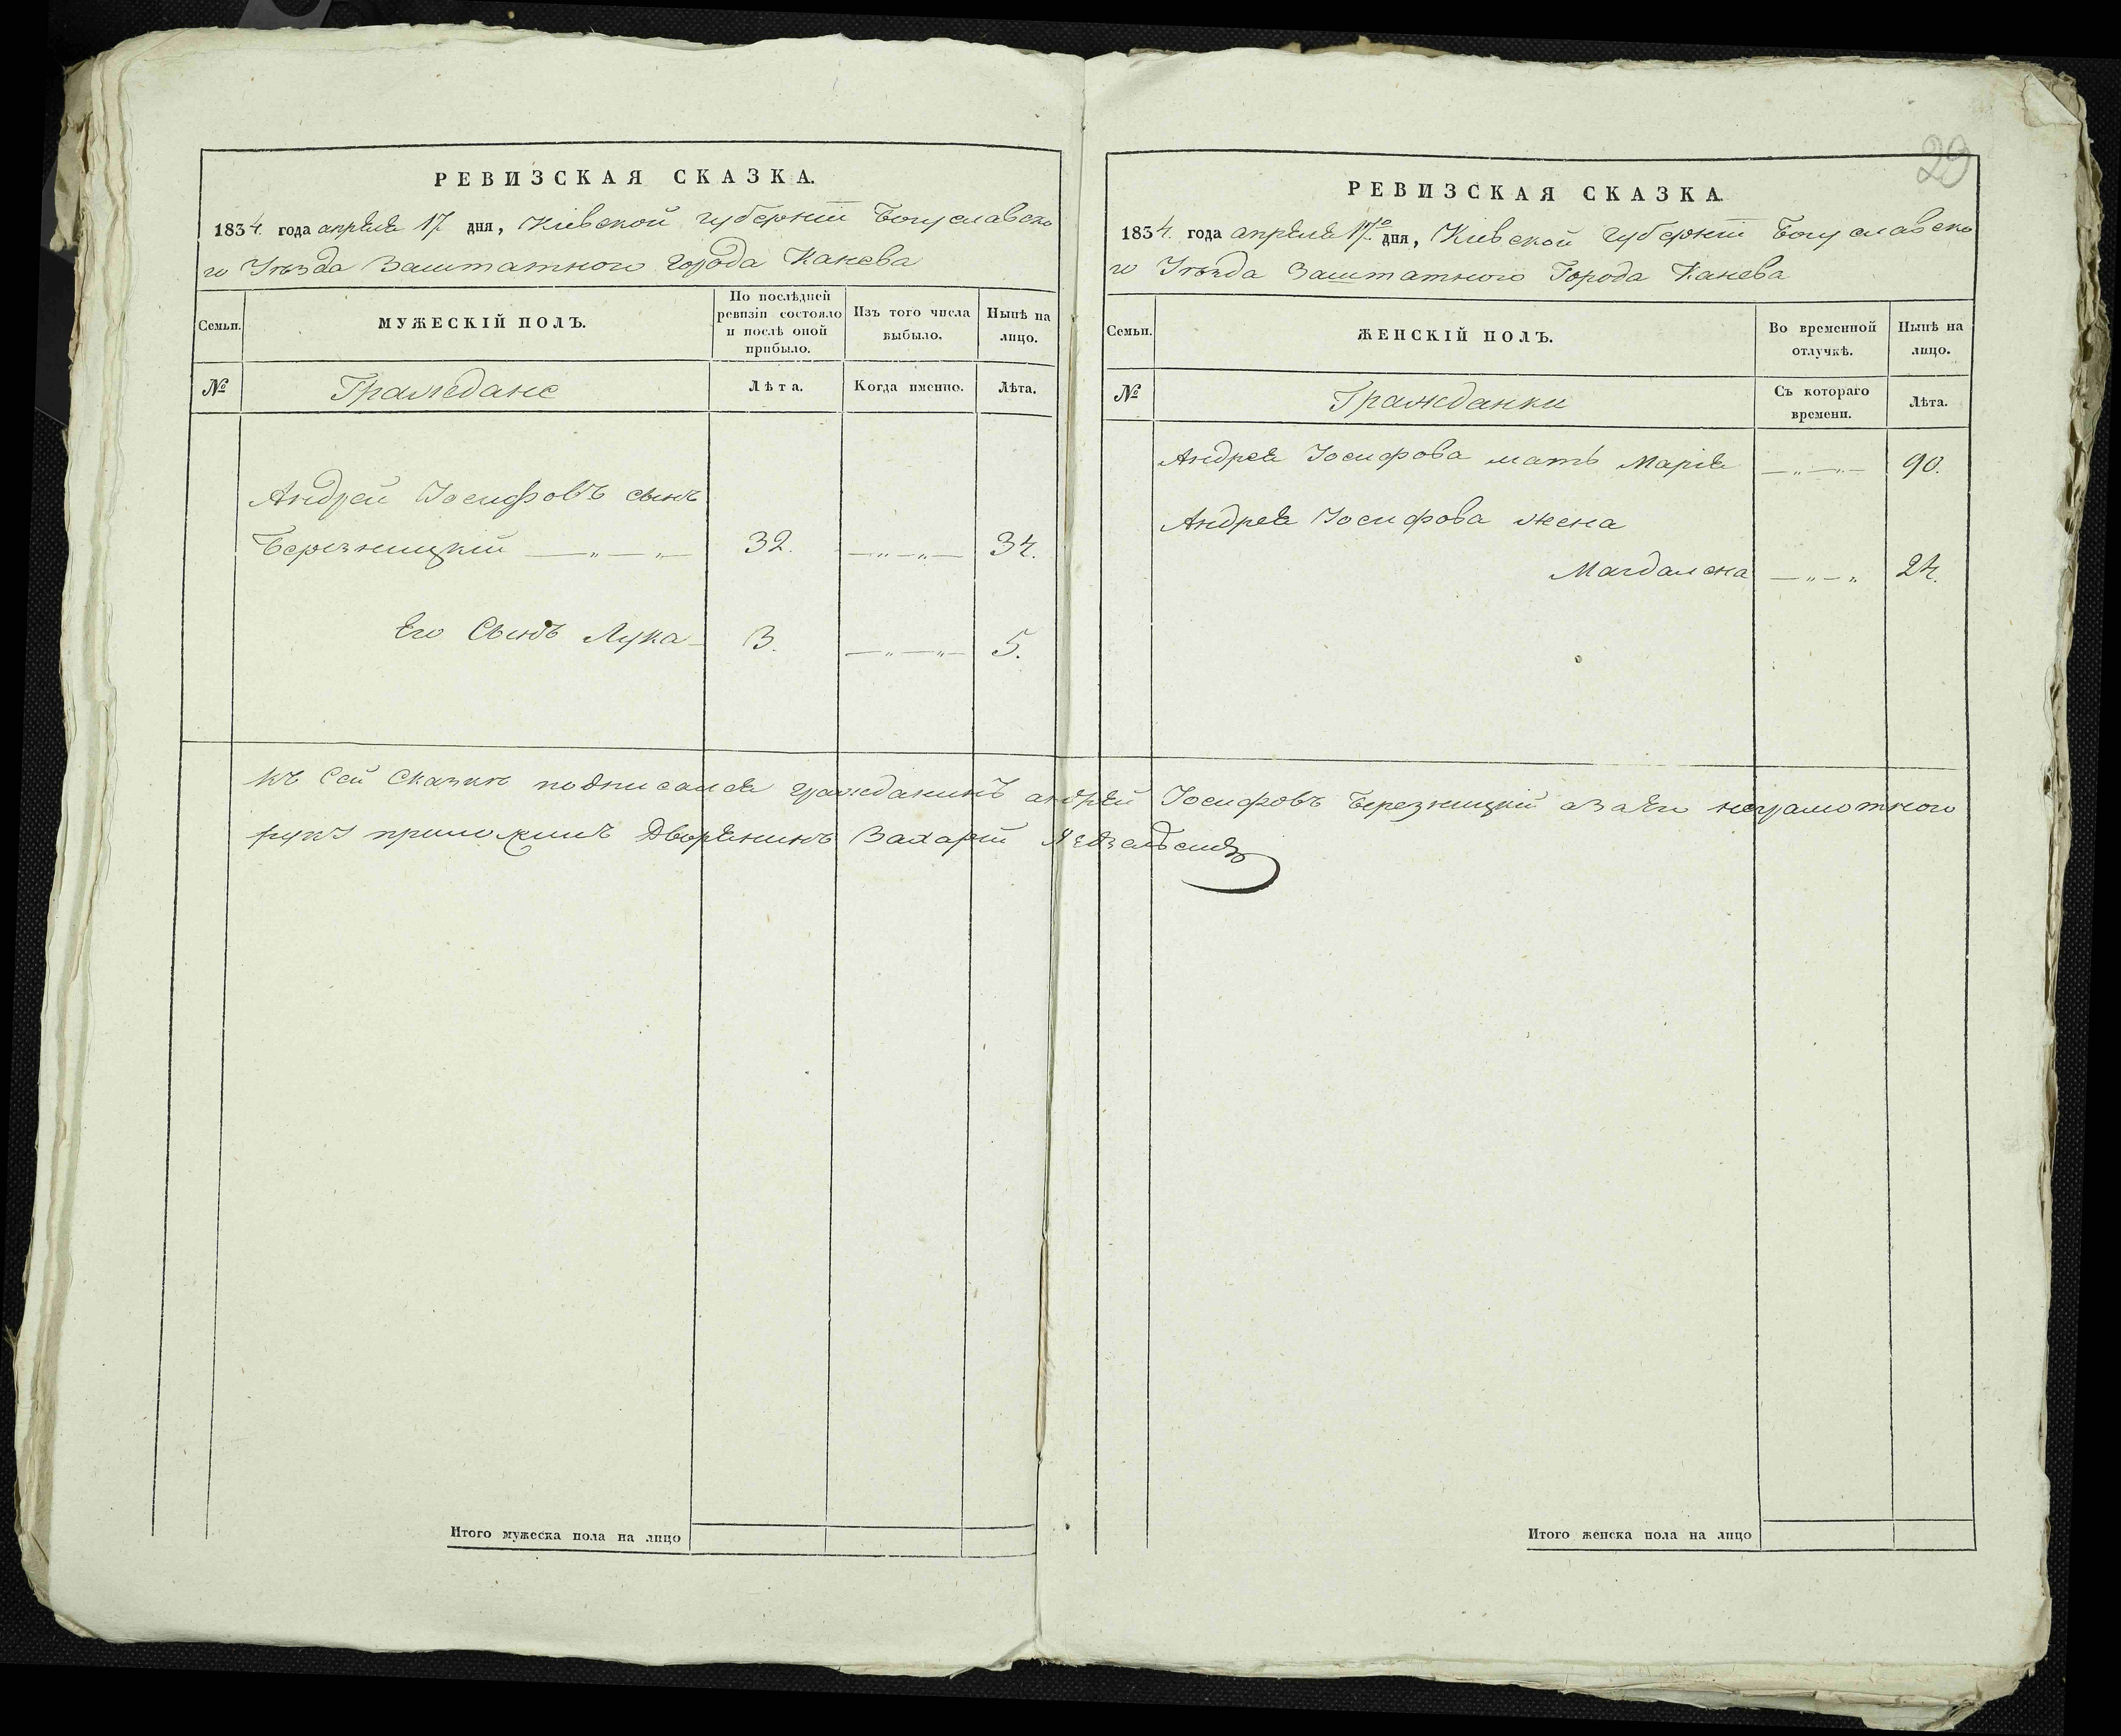 29
РЕВИЗСКАЯ СКАЗКА.
1834. года апрѣля 17 дня, Кіевской губерніи Богуславско
го Уѣзда Заштатного Города Канева
Семьи.
МУЖЕСКІЙ ПОЛЪ.
По послѣдней
ревизіи состояло
и послѣ оной
прибыло.
Изъ того числа
выбыло.
Нынѣ на
лицо.
№
Граждане
Лѣта.
Когда именно.
Лѣта.
Андрей Іосифовъ сынъ
Березницкій — „ — „ — 32. — „ — „ — 34.
Его Сынъ Лука 3. — „ — „ — 5.
РЕВИЗСКАЯ СКАЗКА.
1834. года апрѣля 17го дня, Кіевской Губерніи Богуславско
го Уѣзда Заштатного Города Канева
Семьи.
ЖЕНСКІЙ ПОЛЪ.
Во временной
отлучкѣ.
Нынѣ на
лицо.
№
Гражданки
Съ котораго
времени.
Лѣта.
Андрея Іосифова мать Марія — „ — „ — 90.
Андрея Іосифова жена
Магдалена — „ — „ 24.
Къ Сей Сказкѣ подписался гражданинъ андрѣй Іосифовъ Березницкій аза его неграмотного
руку приложилъ Дворянинъ Захарій
Итого мужеска пола на лицо
Итого женска пола на лицо